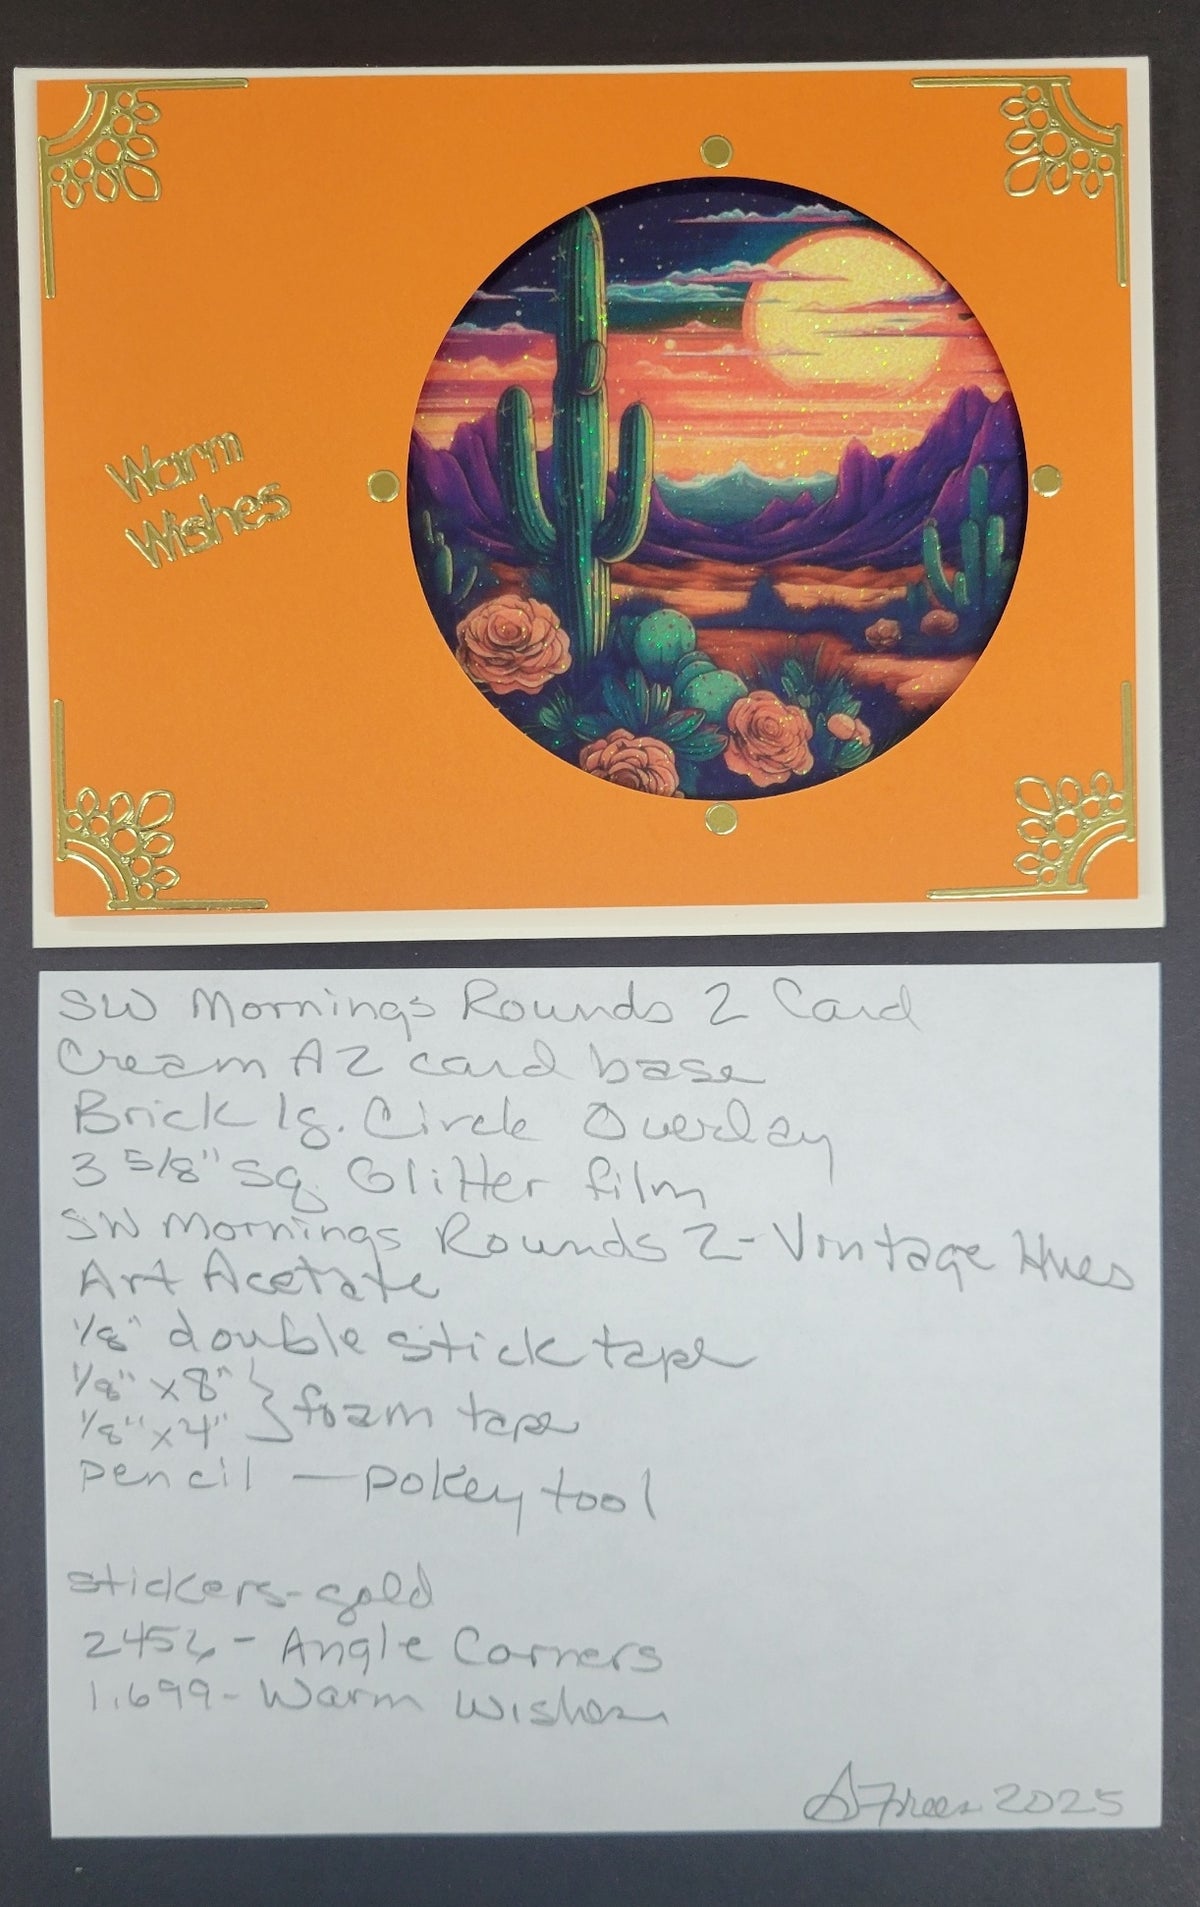 Warm
Wishes
SW Mornings Rounds 2 Card
Cream A2 card base
Brick lg. Circle Overlay
3 5/8" sq. Glitter film
SW Mornings Rounds 2 - Vintage Hues
Art Acetate
1/8" double stick tape
1/8" x 8" } foam tape
1/8" x 4"
pencil — pokey tool
stickers - gold
2456 - Angle Corners
1.699 - Warm Wishes
2025